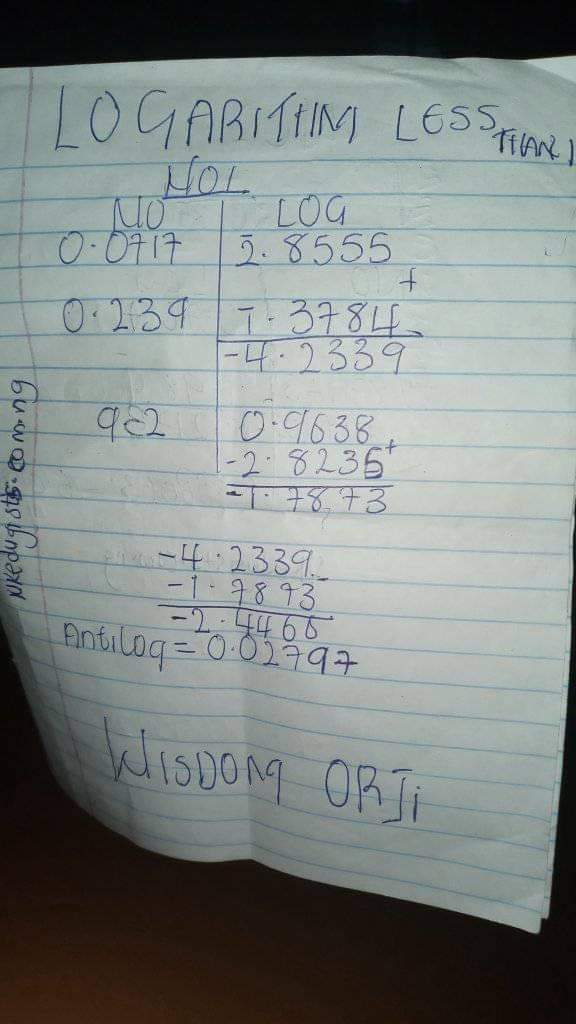 LOGARITHM LESS THAN 1
NO1.
NO LOG
0.0717 2̄.8555
+
0.239 1̄.3784
-4.2339
9.2 0.9638
-2.8235+
-1.7873
-4.2339-
-1.7873
-2.4466
Antilog = 0.02797
WISDOM ORJi